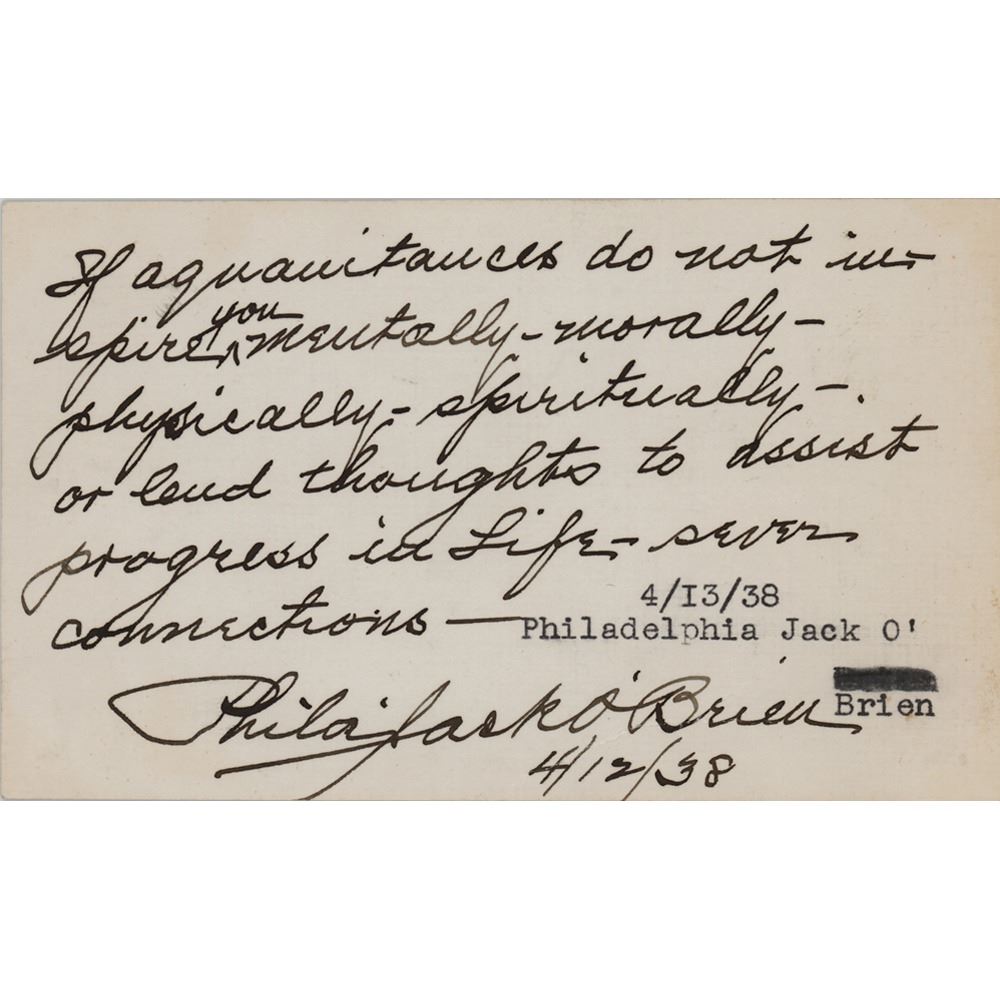 If aquanitances do not in-
spire you mentally - morally -
physically - spiritually -.
or lend thoughts to assist
progress in Life - sever
connections —
4/I3/38
Philadelphia Jack O'
Brien
Phila' Jack O'Brien
4/12/38